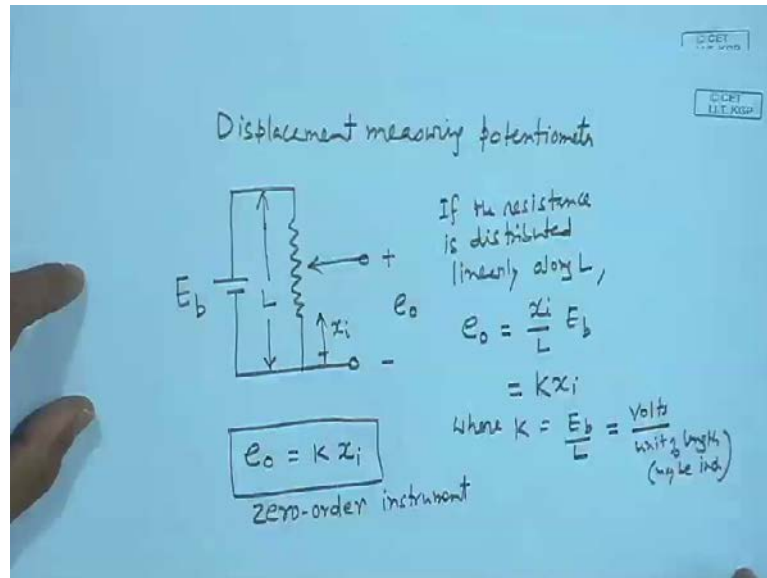 © CET
I.I.T. KGP
© CET
I.I.T. KGP
Displacement measuring potentiometer
E_b
L
x_i
+
e_o
-
If the resistance
is distributed
linearly along L,
e_o = x_i / L E_b
= K x_i
where K = E_b / L = Volts / unit of length
(may be inch)
e_o = K x_i
zero-order instrument